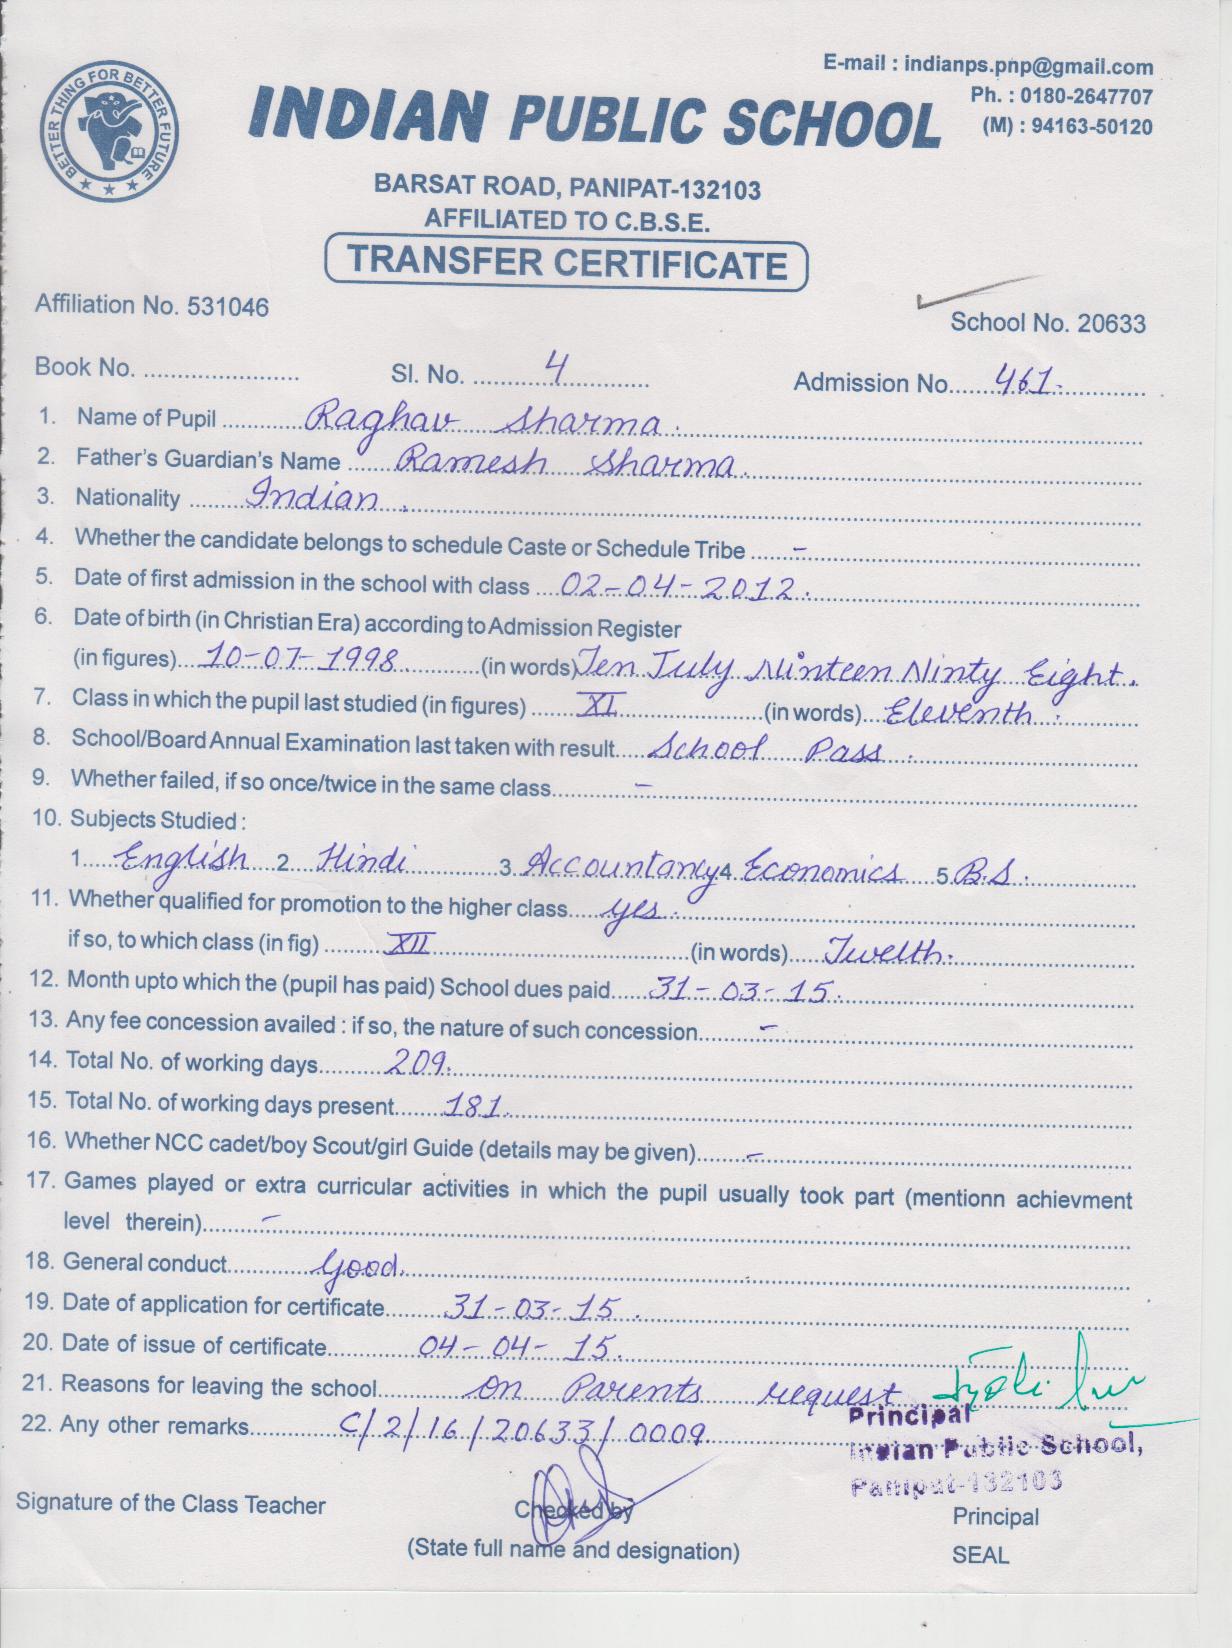 BETTER THING FOR BETTER FUTURE
E-mail : indianps.pnp@gmail.com
Ph. : 0180-2647707
(M) : 94163-50120
INDIAN PUBLIC SCHOOL
BARSAT ROAD, PANIPAT-132103
AFFILIATED TO C.B.S.E.
TRANSFER CERTIFICATE
Affiliation No. 531046 School No. 20633
Book No. Sl. No. 4 Admission No. 461.
1. Name of Pupil Raghav Sharma.
2. Father's Guardian's Name Ramesh Sharma.
3. Nationality Indian.
4. Whether the candidate belongs to schedule Caste or Schedule Tribe -
5. Date of first admission in the school with class 02-04-2012.
6. Date of birth (in Christian Era) according to Admission Register
(in figures) 10-07-1998. (in words) Ten July Ninteen Ninty Eight.
7. Class in which the pupil last studied (in figures) XI (in words) Eleventh.
8. School/Board Annual Examination last taken with result School Pass.
9. Whether failed, if so once/twice in the same class -
10. Subjects Studied :
1. English 2. Hindi 3. Accountancy 4. Economics 5. B.S.
11. Whether qualified for promotion to the higher class yes.
if so, to which class (in fig) XII (in words) Twelth.
12. Month upto which the (pupil has paid) School dues paid 31-03-15.
13. Any fee concession availed : if so, the nature of such concession -
14. Total No. of working days 209.
15. Total No. of working days present 181.
16. Whether NCC cadet/boy Scout/girl Guide (details may be given) -
17. Games played or extra curricular activities in which the pupil usually took part (mentionn achievment
level therein) -
18. General conduct Good.
19. Date of application for certificate 31-03-15.
20. Date of issue of certificate 04-04-15.
21. Reasons for leaving the school on Parents request
22. Any other remarks C/2/16/20633/0009
Principal
Indian Public School,
Panipat-132103
Signature of the Class Teacher Checked by Principal
(State full name and designation) SEAL